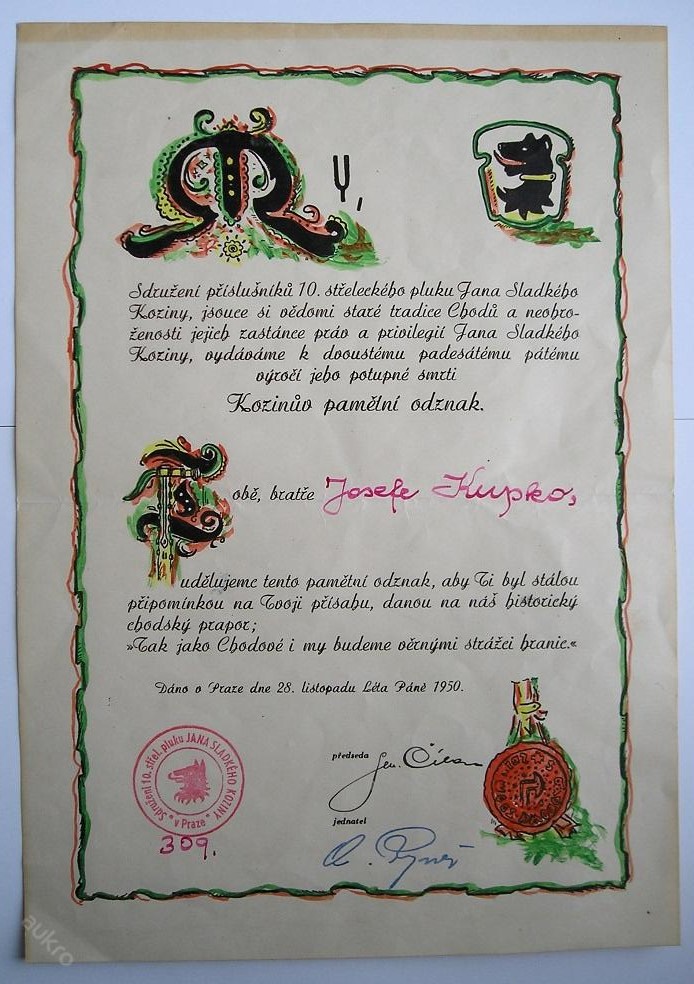 MY,
Sdružení příslušníků 10. střeleckého pluku Jana Sladkého
Koziny, jsouce si vědomi staré tradice Chodů a neohro-
ženosti jejich zastánce práv a privilegií Jana Sladkého
Koziny, vydáváme k dvoustému padesátému pátému
výročí jeho potupné smrti
Kozinův pamětní odznak.
Tobě, bratře Josefe Kupko,
udělujeme tento pamětní odznak, aby Ti byl stálou
připomínkou na Tvoji přísahu, danou na náš historický
chodský prapor;
»Tak jako Chodové i my budeme věrnými strážci hranic.«
Dáno v Praze dne 28. listopadu Léta Páně 1950.
Sdružení 10. střel. pluku JANA SLADKÉHO KOZINY
* v Praze *
309.
předseda
gen.
jednatel
aukro